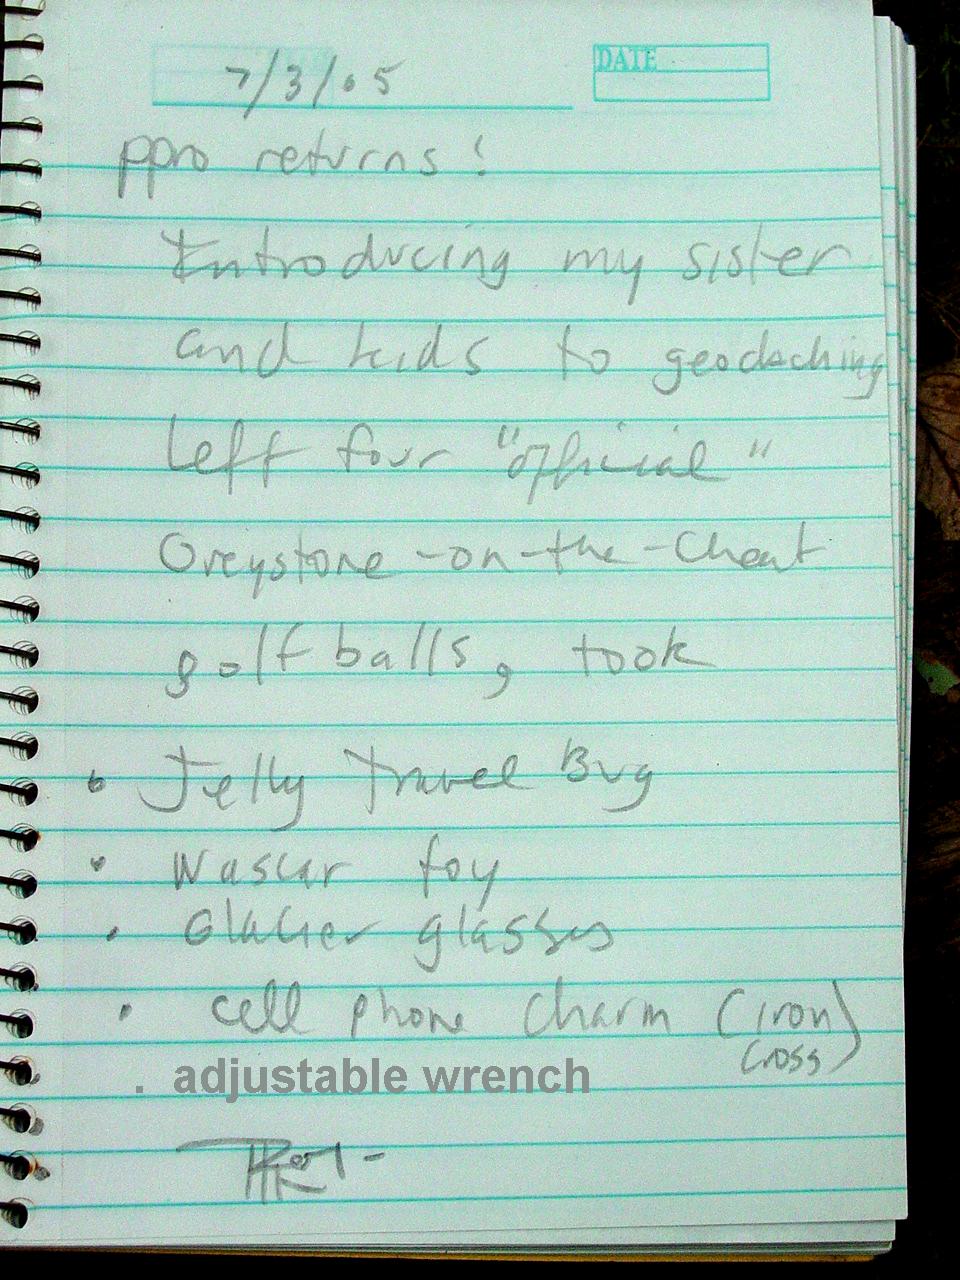 7/3/05
DATE
ppro returns!
Introducing my sister
and kids to geocaching
Left four "official"
Greystone-on-the-Cheat
golf balls, took
• Jelly Travel Bug
• Nascar toy
• Glacier glasses
• cell phone charm (iron
cross)
. adjustable wrench